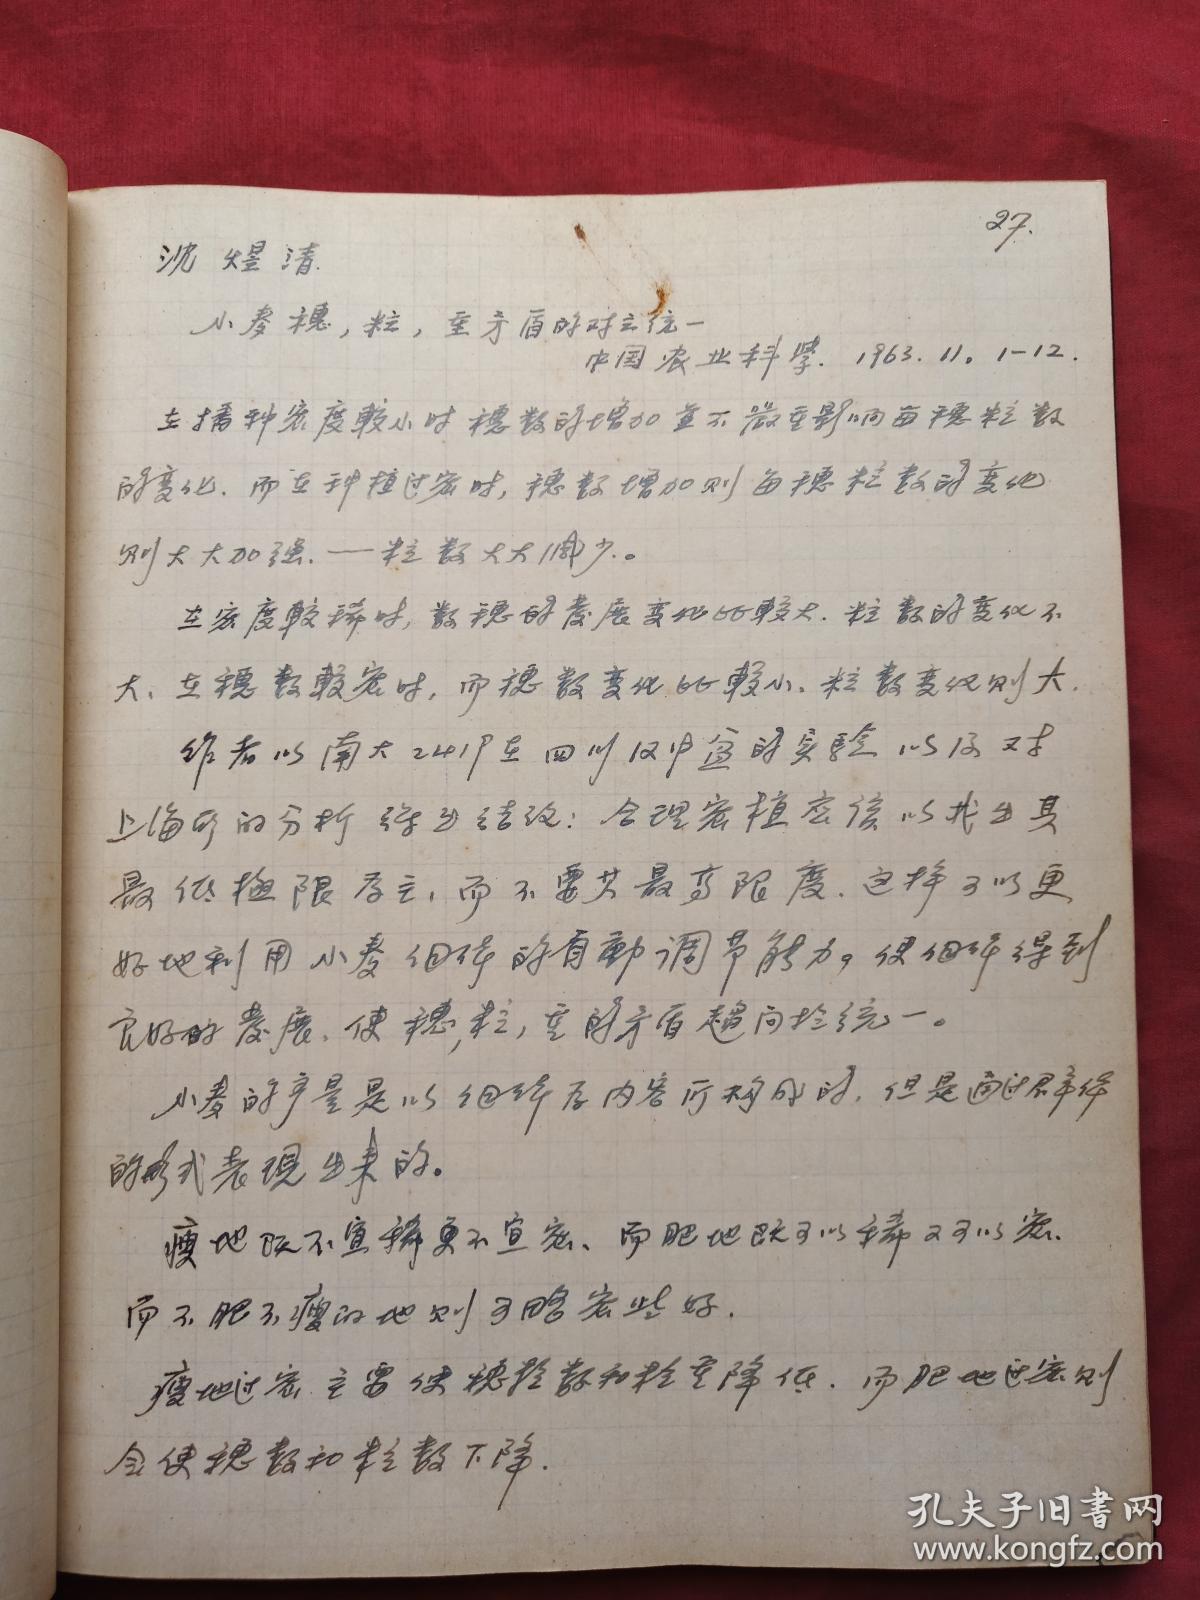 27.
沈煜清.
小麦穗,粒,重矛盾的对立统一
中国农业科学. 1963. 11. 1-12.
在播种密度較小时穗数的增加並不嚴重影响每穗粒数
的变化. 而在种植过密时, 穗数增加则每穗粒数的变化
则大大加强. —— 粒数大大减少。
在密度較稀时, 数穗的發展变化比較大. 粒数的变化不
大、在穗数較密时, 而穗数变化比較小、粒数变化则大.
作者以南大2419在四川汉中盆的实驗以及对
上海所的分析 得出结故: 合理密植应该以找出其
最低極限为主, 而不要其最高限度. 这样可以更
好地利用小麦個体的自動调节能力, 使個体得到
良好的發展. 使穗,粒,重的矛盾趨向於统一。
小麦的产量是以個体为内容所构成的. 但是通过群体
的形式表現出来的。
瘦地既不宜稀更不宜密、而肥地既可以稀又可以密.
而不肥不瘦的地则可略密些好.
瘦地过密主要使穗粒数和粒重降低. 而肥地过密则
会使穗数和粒数下降.
孔夫子旧书网
www.kongfz.com